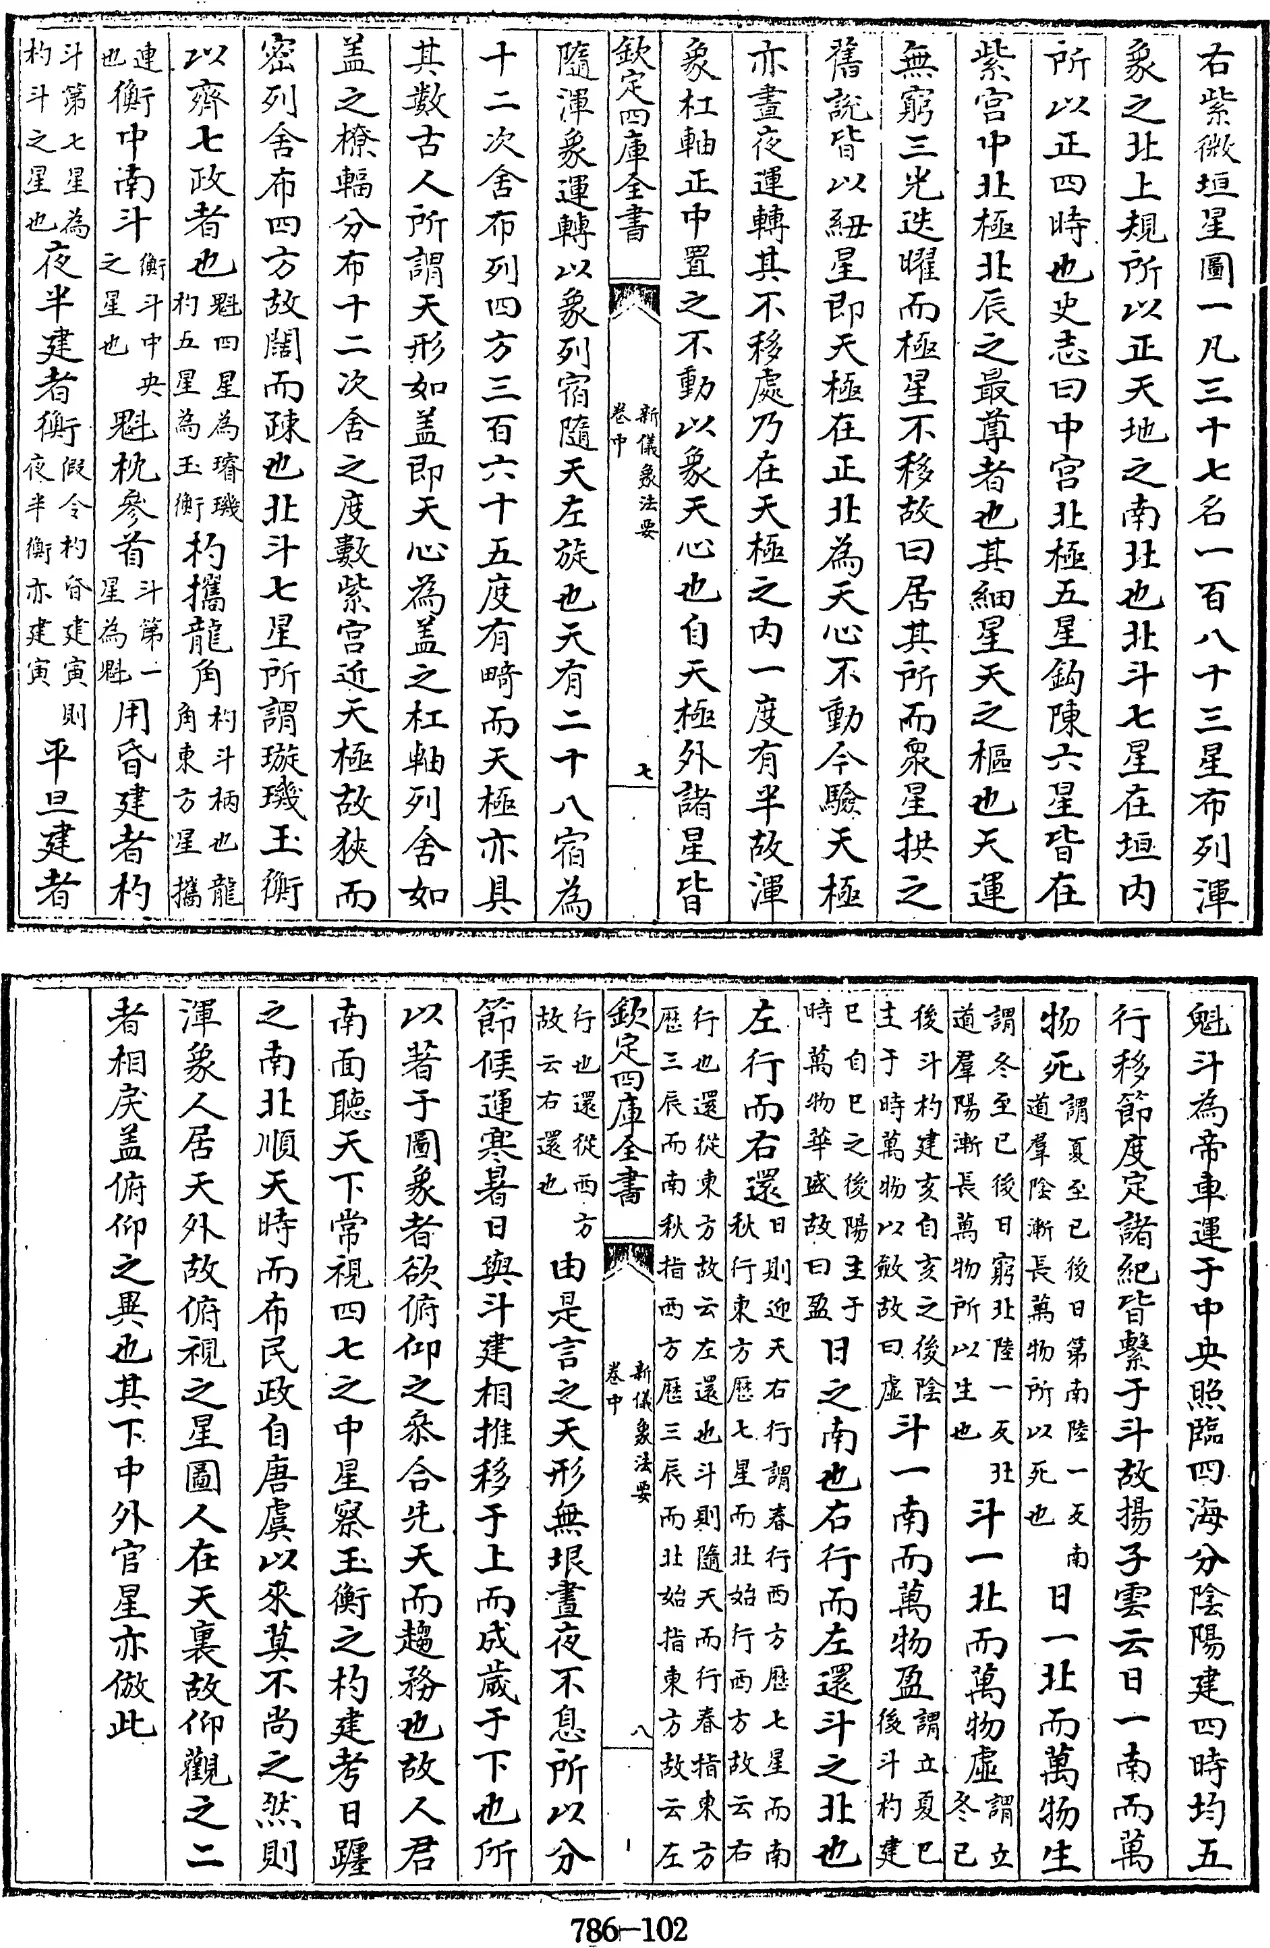 右紫微垣星圖一凡三十七名一百八十三星布列渾
象之北上規所以正天地之南北也北斗七星在垣内
所以正四時也史志曰中宫北極五星鈎陳六星皆在
紫宫中北極北辰之最尊者也其細星天之樞也天運
無窮三光迭曜而極星不移故曰居其所而衆星拱之
舊説皆以紐星即天極在正北為天心不動今驗天極
亦晝夜運轉其不移處乃在天極之内一度有半故渾
象杠軸正中置之不動以象天心也自天極外諸星皆
欽定四庫全書
新儀象法要
卷中
七
隨渾象運轉以象列宿隨天左旋也天有二十八宿為
十二次舍布列四方三百六十五度有畸而天極亦具
其數古人所謂天形如盖即天心為盖之杠軸列舍如
盖之橑輻分布十二次舍之度數紫宫近天極故狹而
密列舍布四方故闊而疎也北斗七星所謂璇璣玉衡
以齊七政者也魁四星為璿璣杓五星為玉衡杓攜龍角杓斗柄也龍角東方星攜
連也衡中南斗衡斗中央之星也魁枕參首斗第一星為魁用昏建者杓
斗第七星為杓斗之星也夜半建者衡假令杓昏建寅則夜半衡亦建寅平旦建者
魁斗為帝車運于中央照臨四海分陰陽建四時均五
行移節度定諸紀皆繫于斗故揚子雲云日一南而萬
物死謂夏至已後日第南陸一反南道羣陰漸長萬物所以死也日一北而萬物生
謂冬至已後日窮北陸一反北道羣陽漸長萬物所以生也斗一北而萬物虛謂立冬已
後斗杓建亥自亥之後陰主于時萬物以斂故曰虛斗一南而萬物盈謂立夏已後斗杓建
巳自巳之後陽主于時萬物華盛故曰盈日之南也右行而左還斗之北也
左行而右還日則迎天右行謂春行西方歴七星而南秋行東方歴七星而北始行西方故云右
行也還從東方故云左還也斗則隨天而行春指東方歴三辰而南秋指西方歴三辰而北始指東方故云左
欽定四庫全書
新儀象法要
卷中
八
行也還從西方故云右還也由是言之天形無垠晝夜不息所以分
節候運寒暑日與斗建相推移于上而成歲于下也所
以著于圖象者欲俯仰之參合先天而趨務也故人君
南面聽天下常視四七之中星察玉衡之杓建考日躔
之南北順天時而布民政自唐虞以來莫不尚之然則
渾象人居天外故俯視之星圖人在天裏故仰觀之二
者相戾盖俯仰之異也其下中外官星亦倣此
786—102